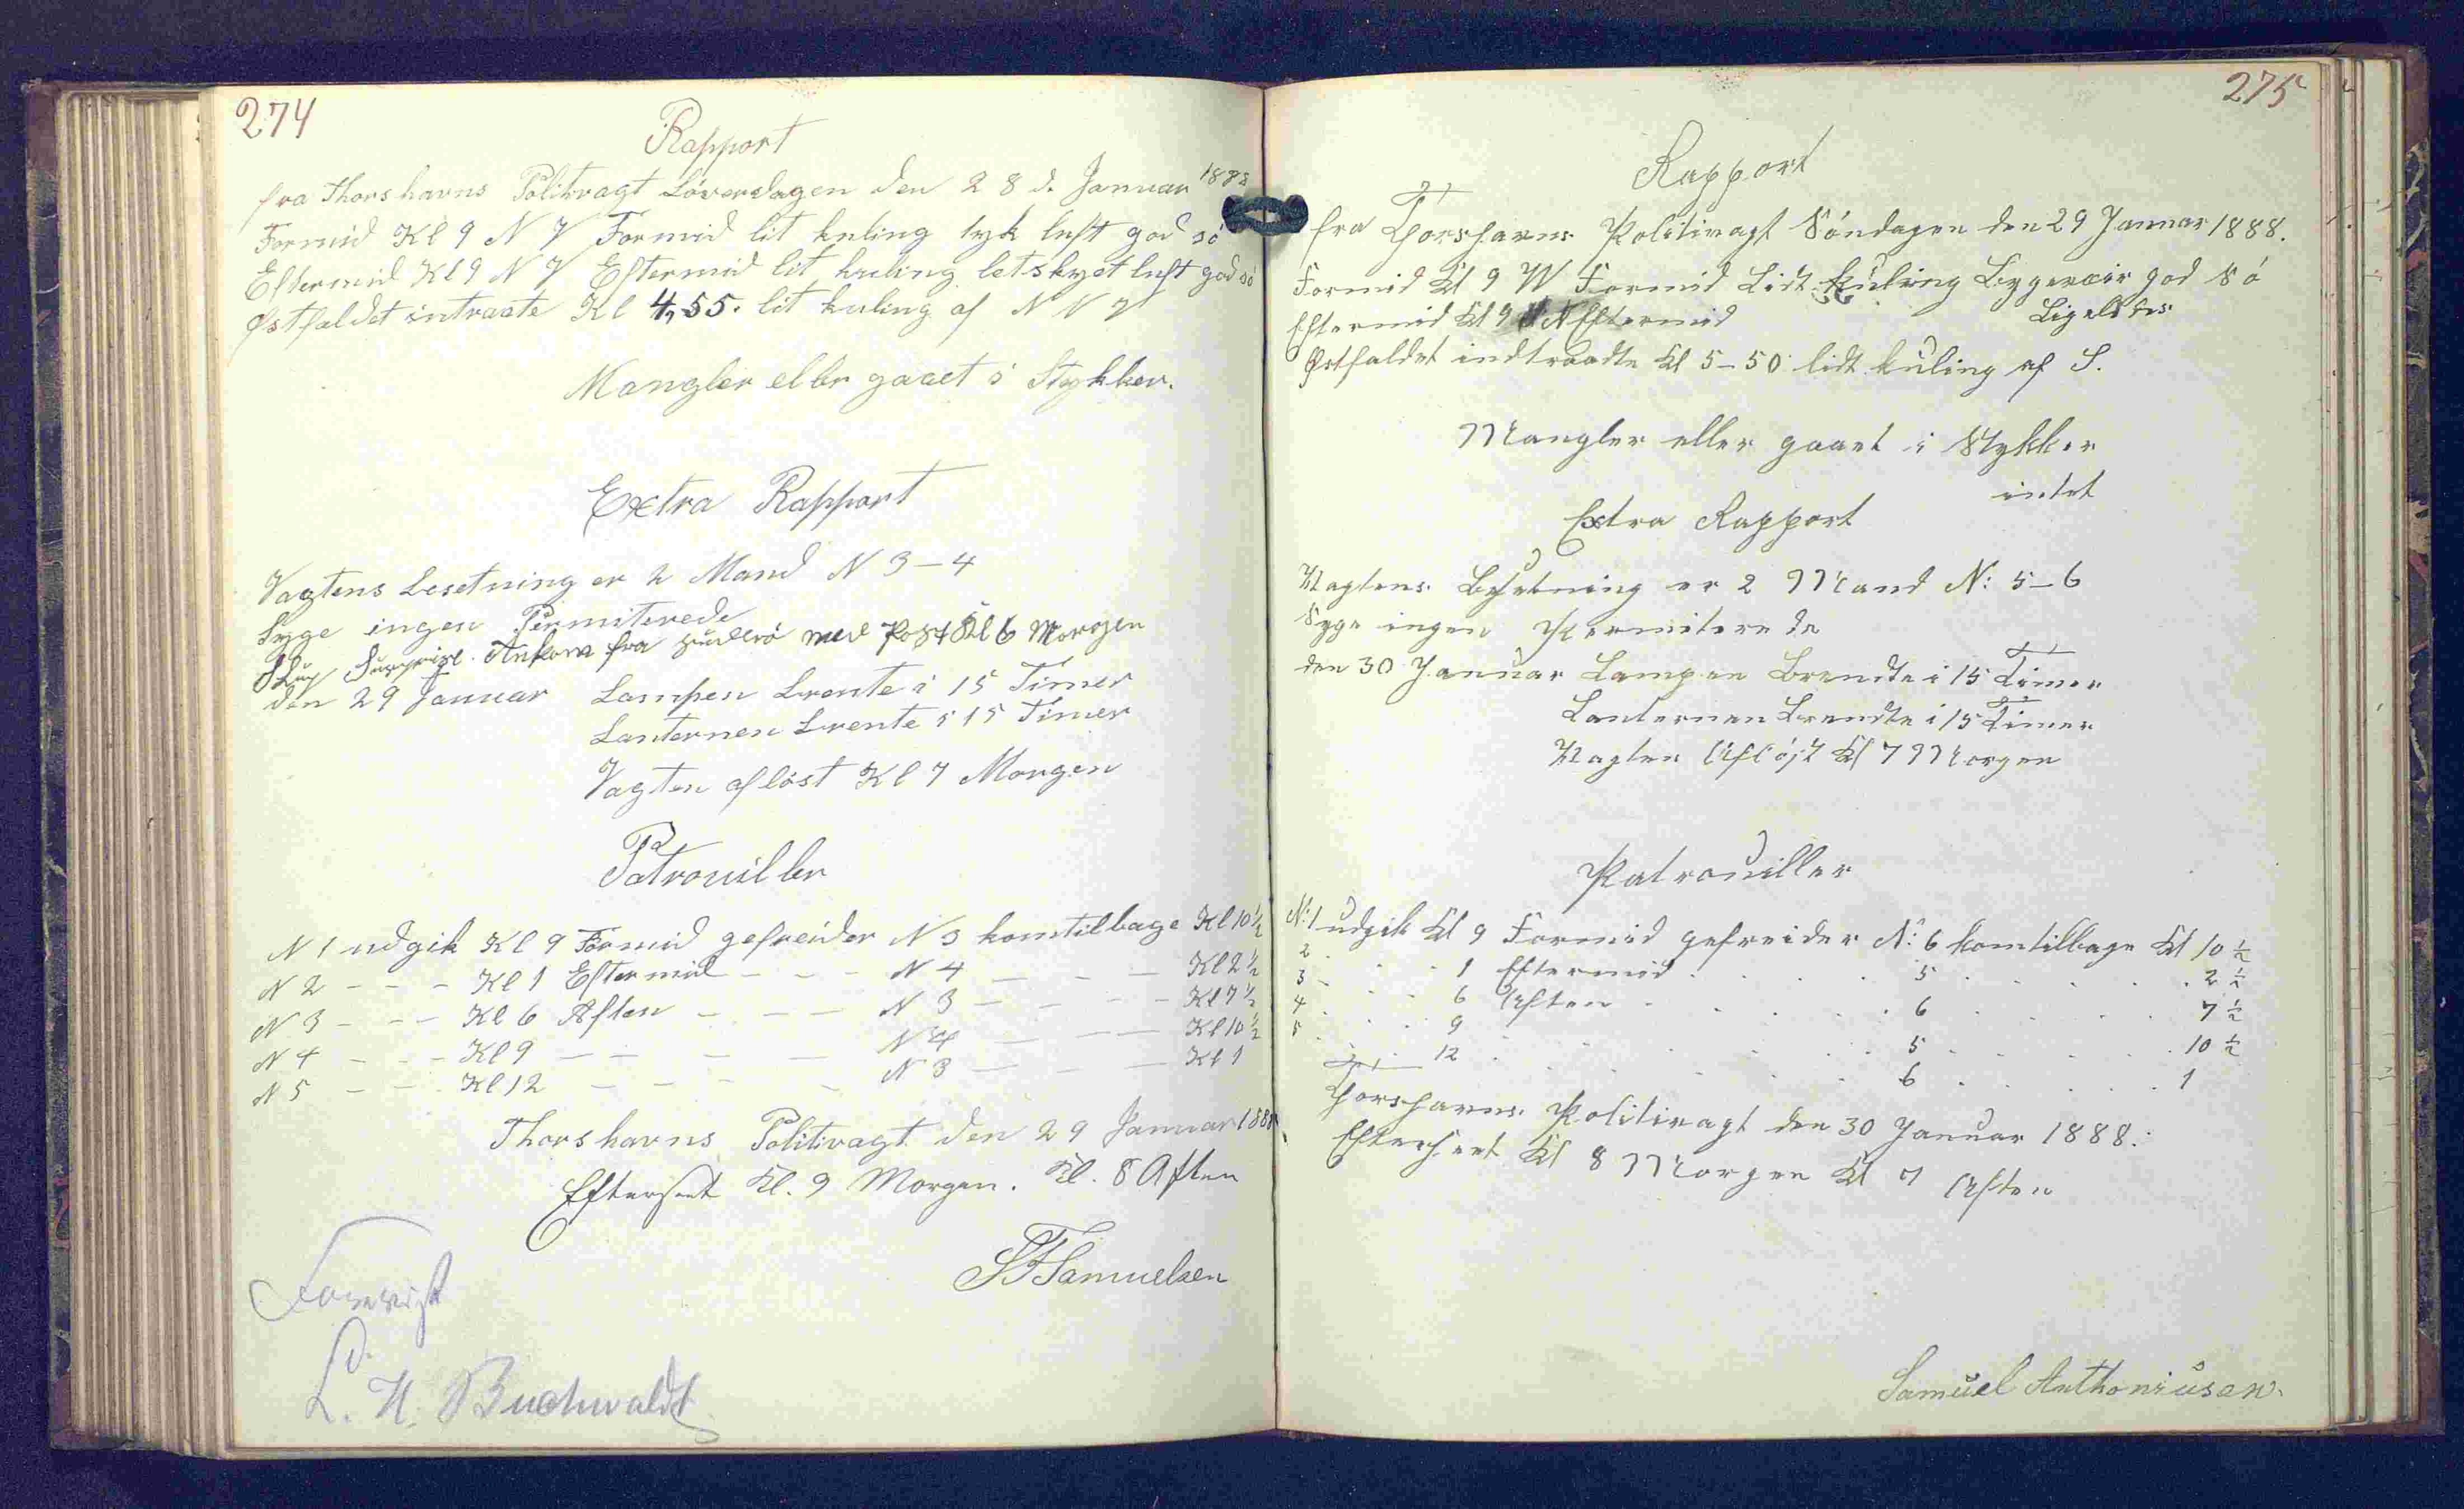 274
Rapport
fra Thorshavns Politivagt Löverdagen den 28 d. Januar 1888
Formid Kl 9 N V Formid lit kuling tyk luft god sö
Eftermid Kl 9 N V Eftermid lit kuling letskyet luft god sö
Østfaldet intraate Kl 4,55. lit kuling af N V
Mangler eller gaaet i Stykker.
Extra Rapport
Vagtens besetning er 2 Mand N 3-4
Syge ingen Permiterede
Slup Surprise. Ankom fra Suderö med Post Kl 6 Morgen
den 29 Januar Lampen brente i 15 Timer
Lanternen brente i 15 Timer
Vagten aflöst Kl 7 Morgen
Patrouiller
N 1 udgik Kl 9 Formid gefreider N 3 komtilbage Kl 10 ½
N 2 - - - Kl 1 Eftermid - - - N 4 - - - Kl 2 ½
N 3 - - - Kl 6 Aften - - - N 3 - - - Kl 7 ½
N 4 - - - Kl 9 - - - - N 4 - - - Kl 10 ½
N 5 - - - Kl 12 - - - - N 3 - - - Kl 1
Thorshavns Politivagt den 29 Januar 1888
Efterseet Kl. 9 Morgen. Kl. 8 Aften
SFSamuelsen
Forevist
L. H. Buchwaldt
275
Rapport
fra Thorshavns Politivagt Söndagen den 29 Januar 1888.
Formid Kl 9 W Formid Lidt kuling Bygeveir god Sö
Eftermid Kl 9 N Eftermid Ligeledes
Østfaldet indtraadte Kl 5-50 lidt kuling af S.
Mangler eller gaaet i Stykker
intet
Extra Rapport
Vagtens Besetning er 2 Mand N: 5-6
Syge ingen Permiterede
den 30 Januar Lampen Brendte i 15 Timer
Lanternen Brendte i 15 Timer
Vagten Aflöst Kl 7 Morgen
Patrouiller
N:1 udgik Kl 9 Formid gefreider N: 6 komtilbage Kl 10 ½
2 . . . 1 Eftermid . . . 5 . . . 2 ½
3 . . . 6 Aften . . . 6 . . . 7 ½
4 . . . 9 . . . 5 . . . 10 ½
5 . . . 12 . . . 6 . . . 1
Thorshavns Politivagt den 30 Januar 1888.
Efterseet Kl 8 Morgen Kl 7 Aften
Samuel Anthoniusen.